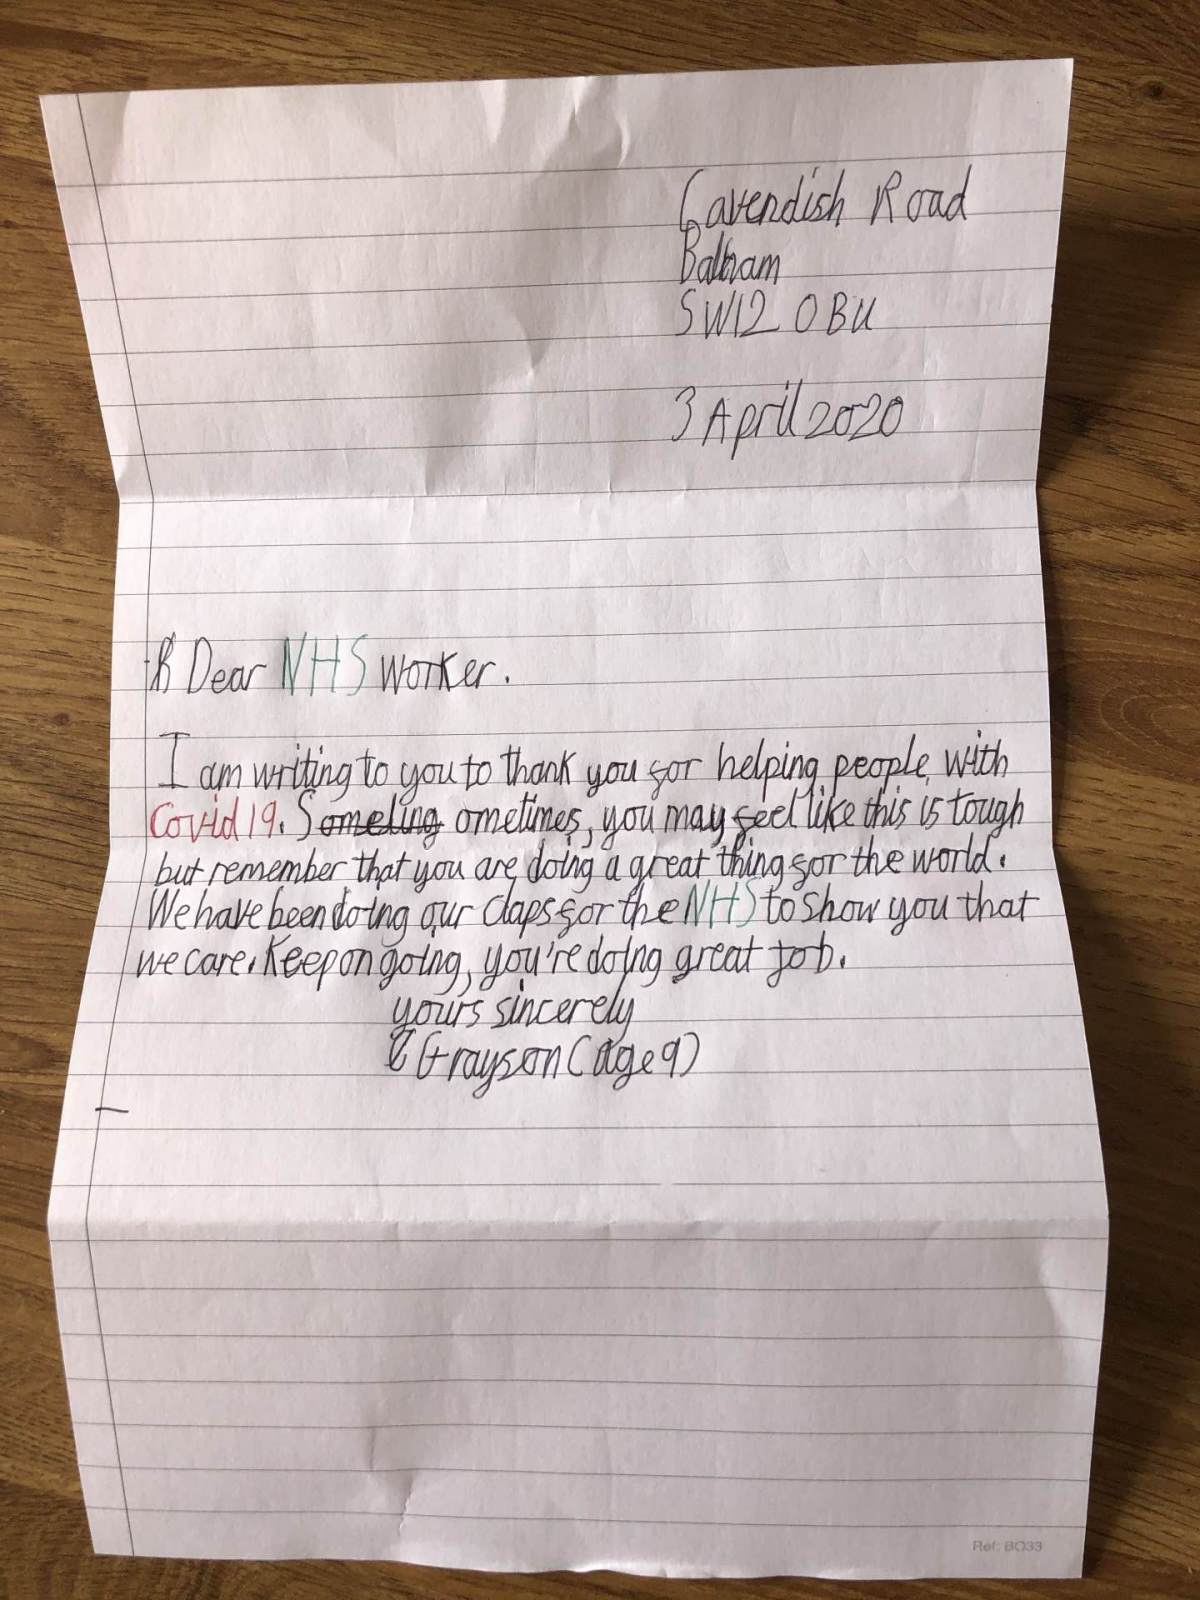 Cavendish Road
Balham
SW12 0BU
3 April 2020
Dear NHS worker.
I am writing to you to thank you for helping people with
Covid 19. Someling ometimes, you may feel like this is tough
but remember that you are doing a great thing for the world.
We have been doing our claps for the NHS to show you that
we care. Keep on going, you're doing great job.
yours sincerely
Grayson (age 9)
Réf: BO33